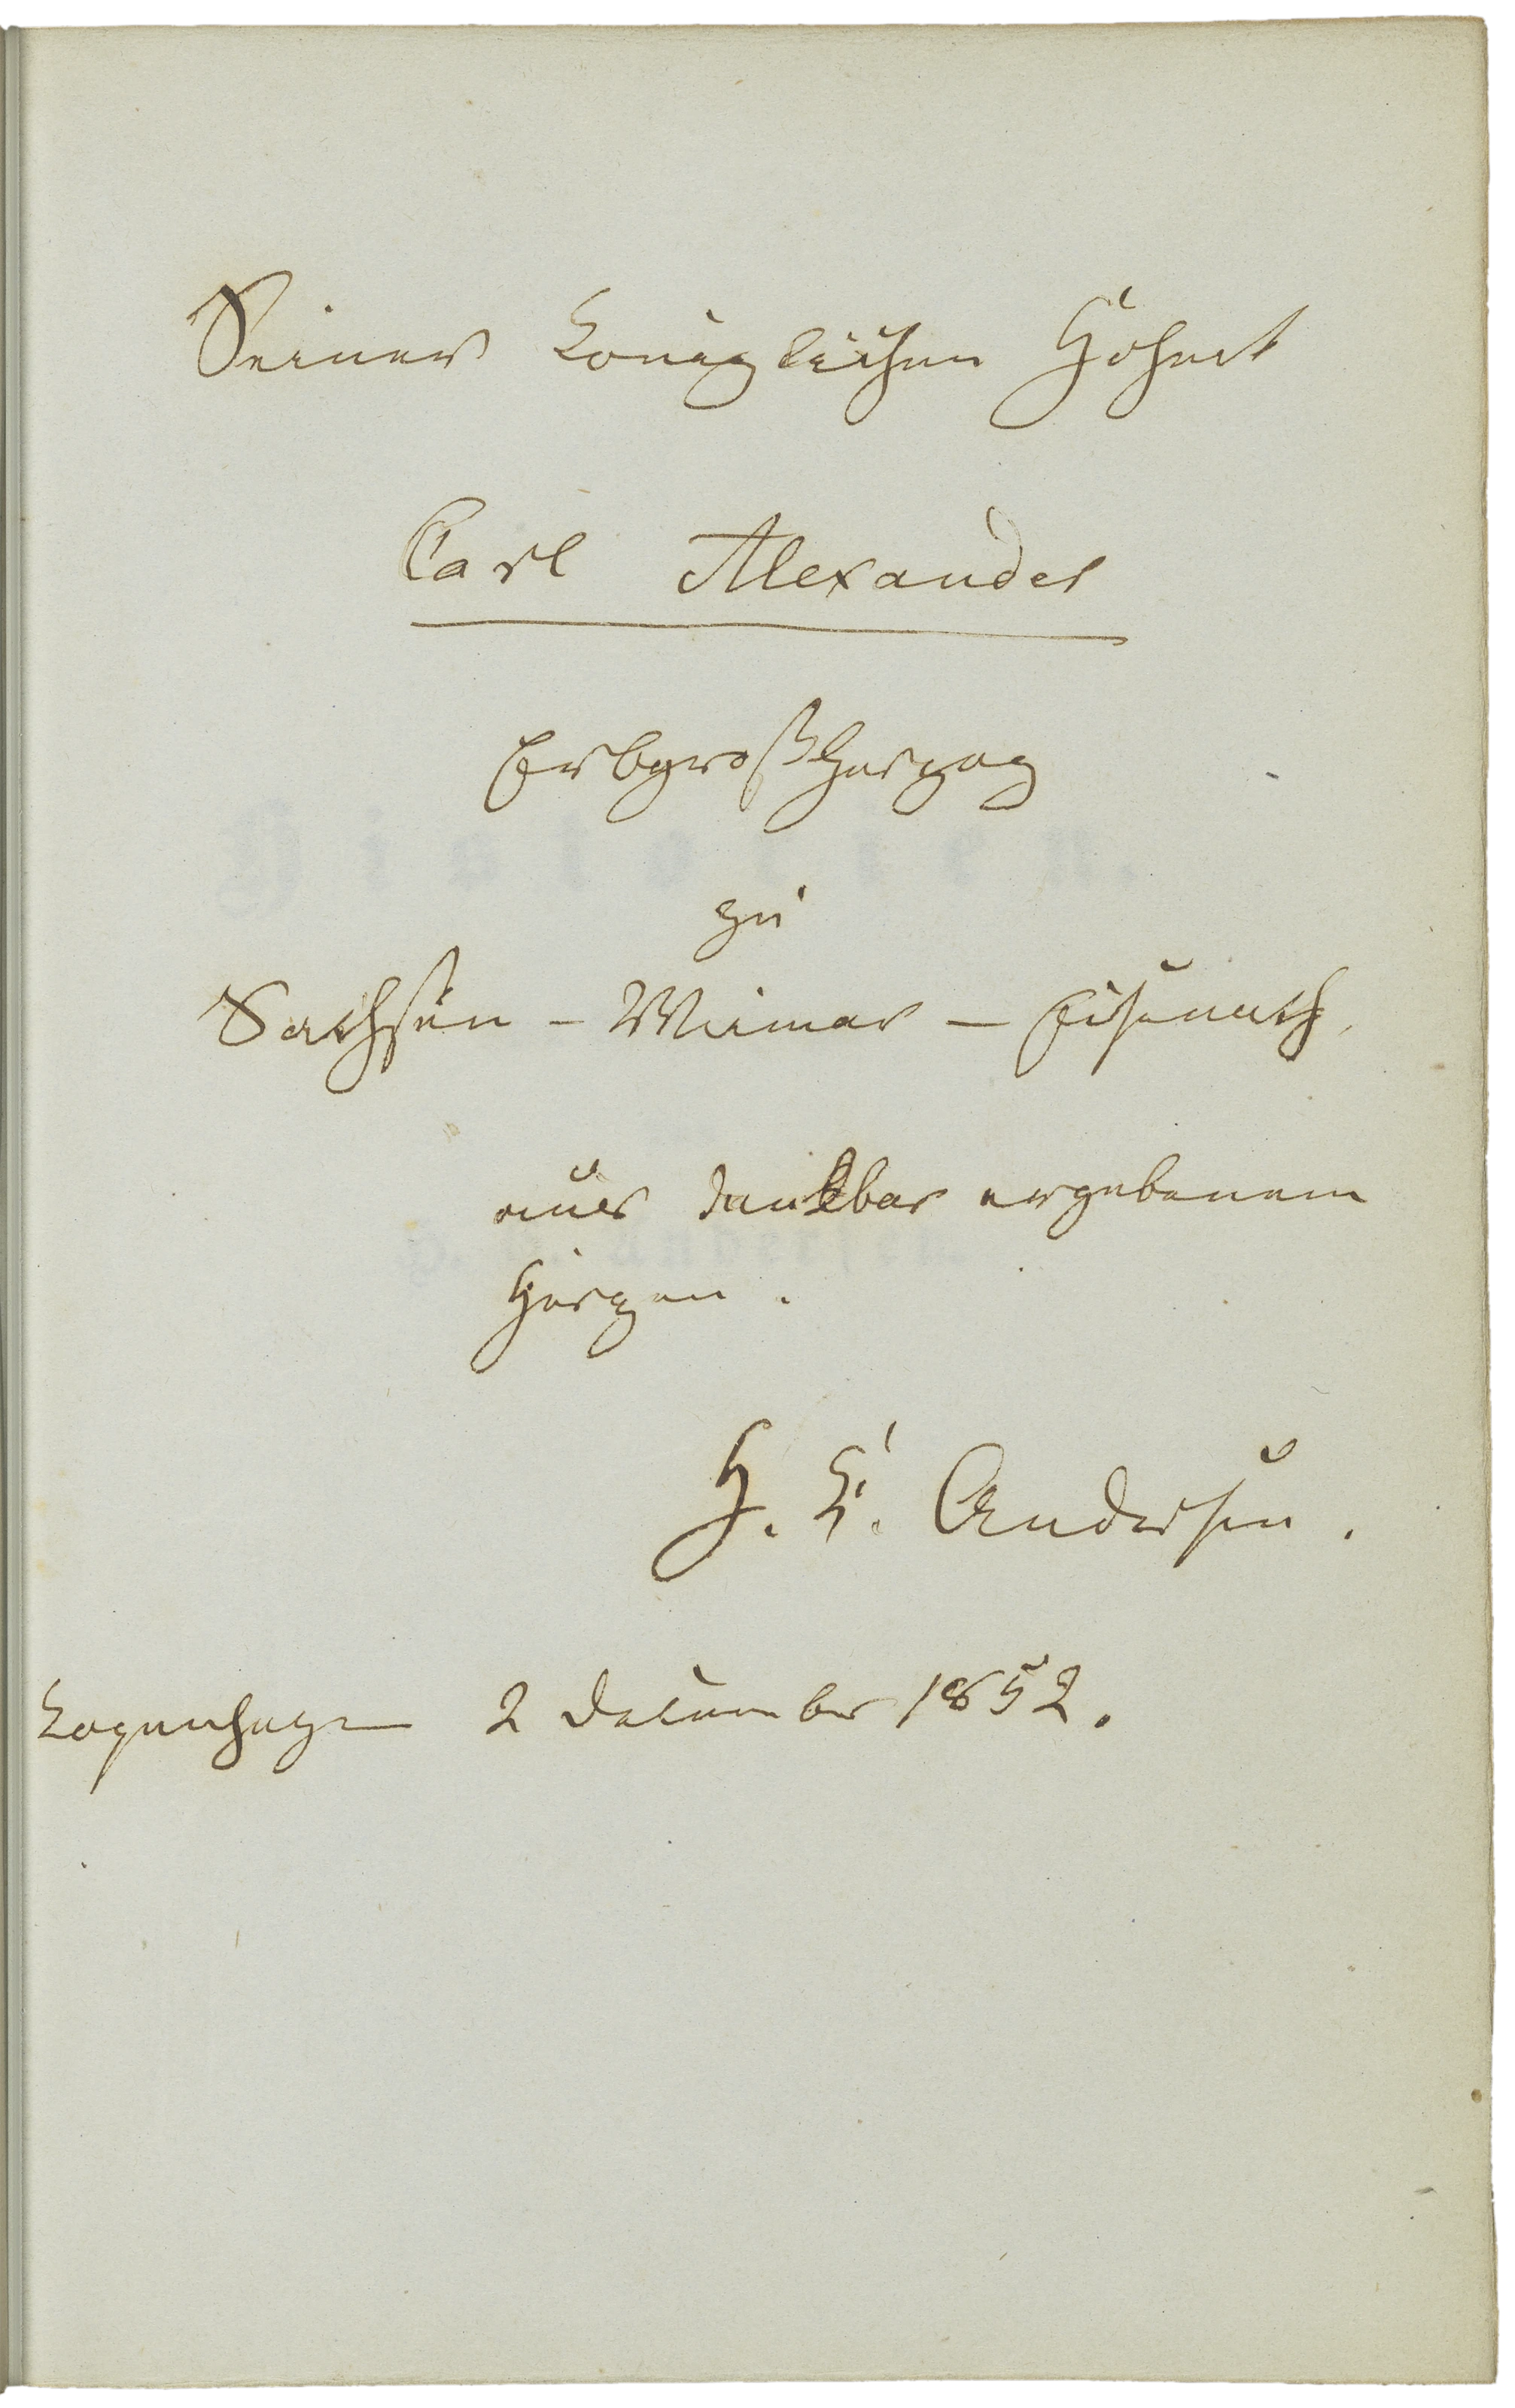 Seiner Königlichen Hoheit
Carl Alexander
Erbgroßherzog
zu
Sachsen – Weimar – Eisenach,
dankbar ergebenem
Herzen.
H. C. Andersen.
Kopenhagen 2 December 1852.